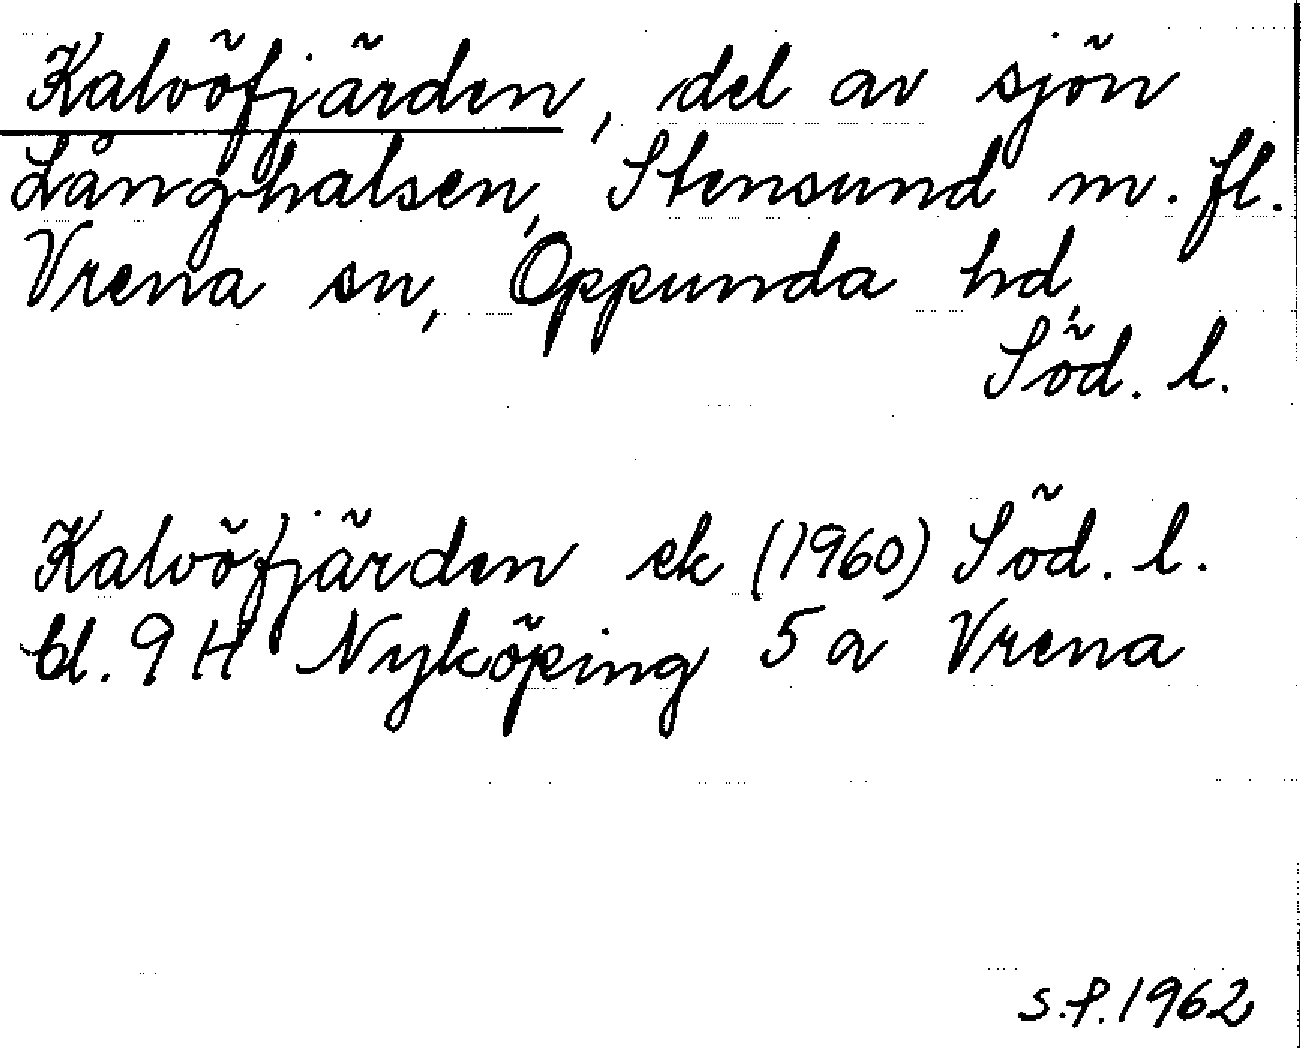 Kalvöfjärden, del av sjön
Långhalsen, Stensund m. fl.
Vrena sn, Oppunda hd,
Söd. l.
Kalvöfjärden ek (1960) Söd. l.
bl. 9 H Nyköping 5 a Vrena
S.P. 1962